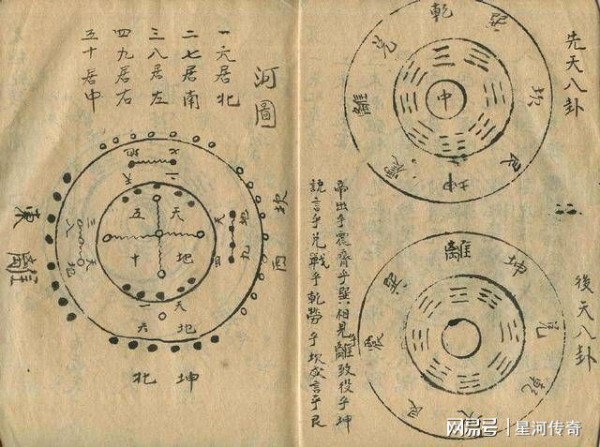 先天八卦
乾
坎
艮
離
兌
中
後天八卦
離
坤
兌
乾
坎
艮
震
巽
帝出乎震齊乎巽相見離致役乎坤
說言乎兌戰乎乾勞乎坎成言乎艮
河圖
一六居北
二七居南
三八居左
四九居右
五十居中
東
離
西
坎
北
坤
天
地
五
十
天
地
六
网易号 | 星河传奇